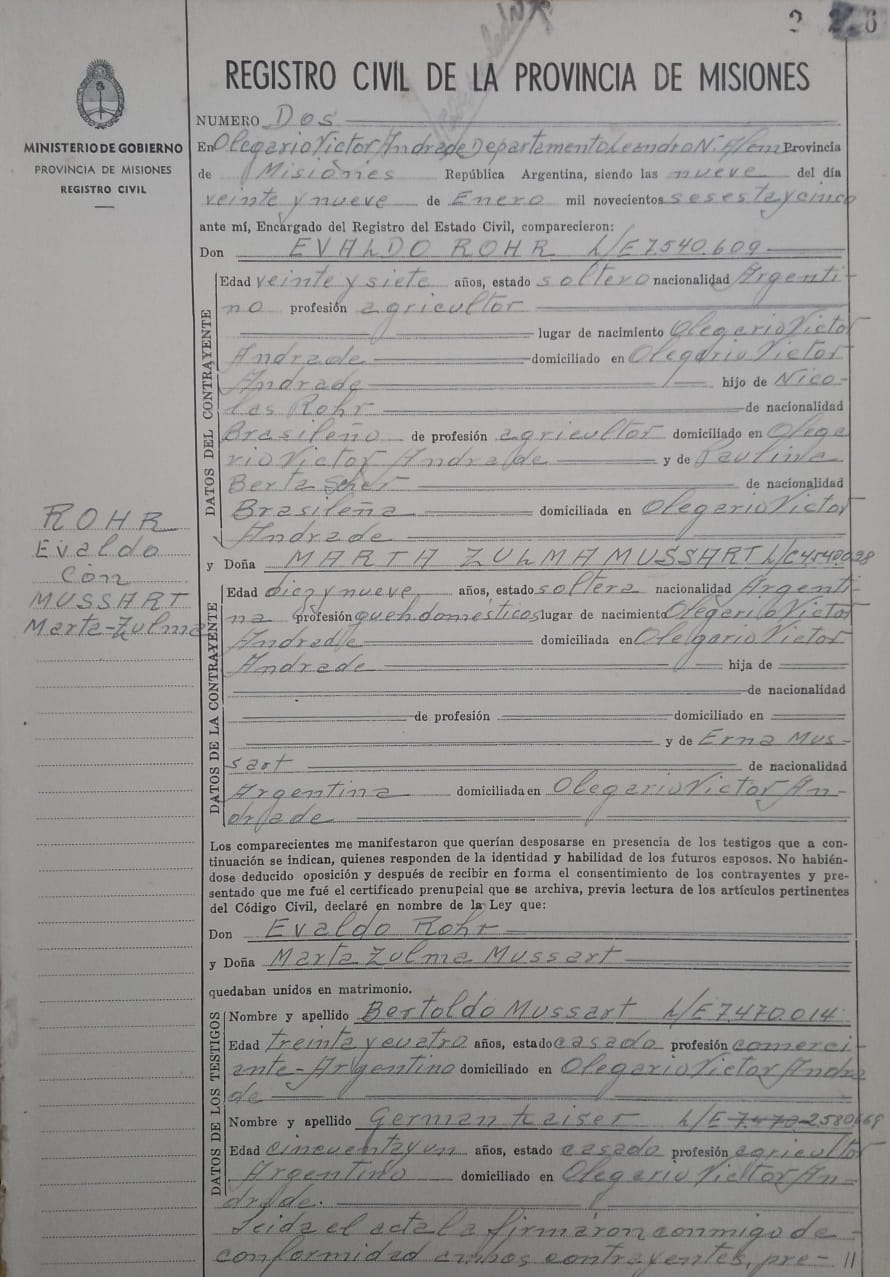 2
6
REGISTRO CIVIL DE LA PROVINCIA DE MISIONES
MINISTERIO DE GOBIERNO
PROVINCIA DE MISIONES
REGISTRO CIVIL
NUMERO Dos
En Olegario Victor Andrade Departamento Leandro N. Alem Provincia
de Misiones República Argentina, siendo las nueve del día
veinte y nueve de Enero mil novecientos sesesta y cinco
ante mí, Encargado del Registro del Estado Civil, comparecieron:
Don EVALDO ROHR L/E 7.540.609
DATOS DEL CONTRAYENTE
Edad veinte y siete años, estado soltero nacionalidad Argenti-
no profesión agricultor
lugar de nacimiento Olegario Victor
Andrade domiciliado en Olegario Victor
Andrade hijo de Nico-
las Rohr de nacionalidad
Brasileño de profesión agricultor domiciliado en Olega
rio Victor Andrade y de Paulina
Berta de nacionalidad
Brasileña domiciliada en Olegario Victor
Andrade
ROHR
Evaldo
con
MUSSART
Marta-Zulma
y Doña MARTA ZULMA MUSSART L/C
DATOS DE LA CONTRAYENTE
Edad diez y nueve años, estado soltera nacionalidad Argenti-
na profesión queh. domesticos lugar de nacimiento Olegario Victor
Andrade domiciliada en Olegario Victor
Andrade hija de
de nacionalidad
de profesión domiciliado en
y de Erna Mus-
sart de nacionalidad
Argentina domiciliada en Olegario Victor An-
drade
Los comparecientes me manifestaron que querían desposarse en presencia de los testigos que a con-
tinuación se indican, quienes responden de la identidad y habilidad de los futuros esposos. No habién-
dose deducido oposición y después de recibir en forma el consentimiento de los contrayentes y pre-
sentado que me fué el certificado prenupcial que se archiva, previa lectura de los artículos pertinentes
del Código Civil, declaré en nombre de la Ley que:
Don Evaldo Rohr
y Doña Marta Zulma Mussart
quedaban unidos en matrimonio.
DATOS DE LOS TESTIGOS
Nombre y apellido Bertoldo Mussart L/E 7.470.014
Edad treinta y cuatro años, estado casado profesión comerci-
ante-Argentino domiciliado en Olegario Victor Andra
de
Nombre y apellido German Kaiser L/E
Edad cincuenta y un años, estado casado profesión agricultor
Argentino domiciliado en Olegario Victor An-
drade.
Leida el acta la firmaron conmigo de
conformidad ambos contrayentes, pre- //